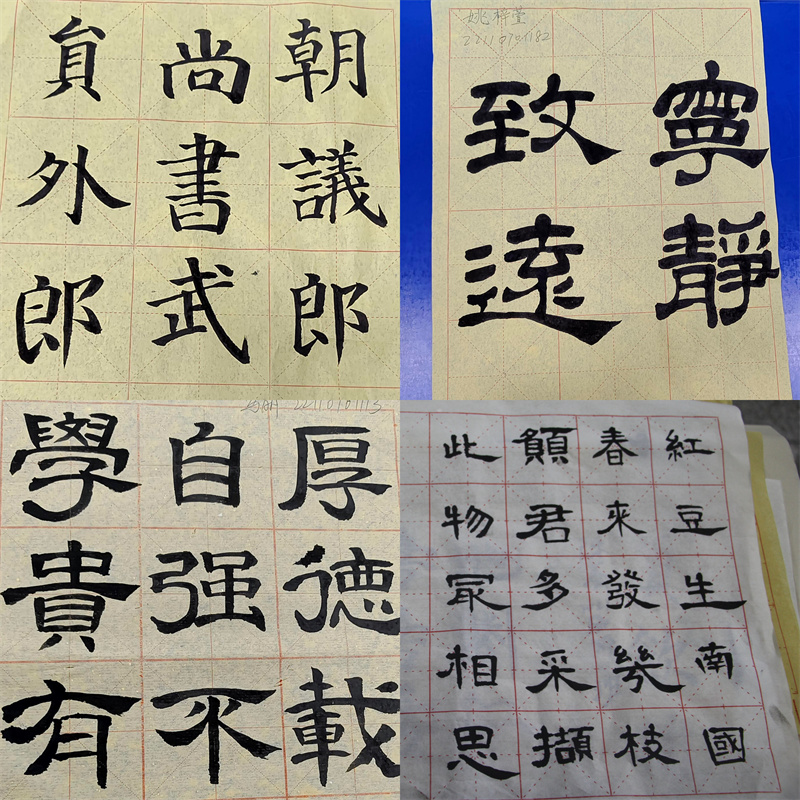 朝議郎
尚書武
貟外郎
姚梓萱
22110701182
寧靜
致遠
厚德載
自强不
學貴有
紅豆生南國
春來發幾枝
願君多采擷
此物冣相思